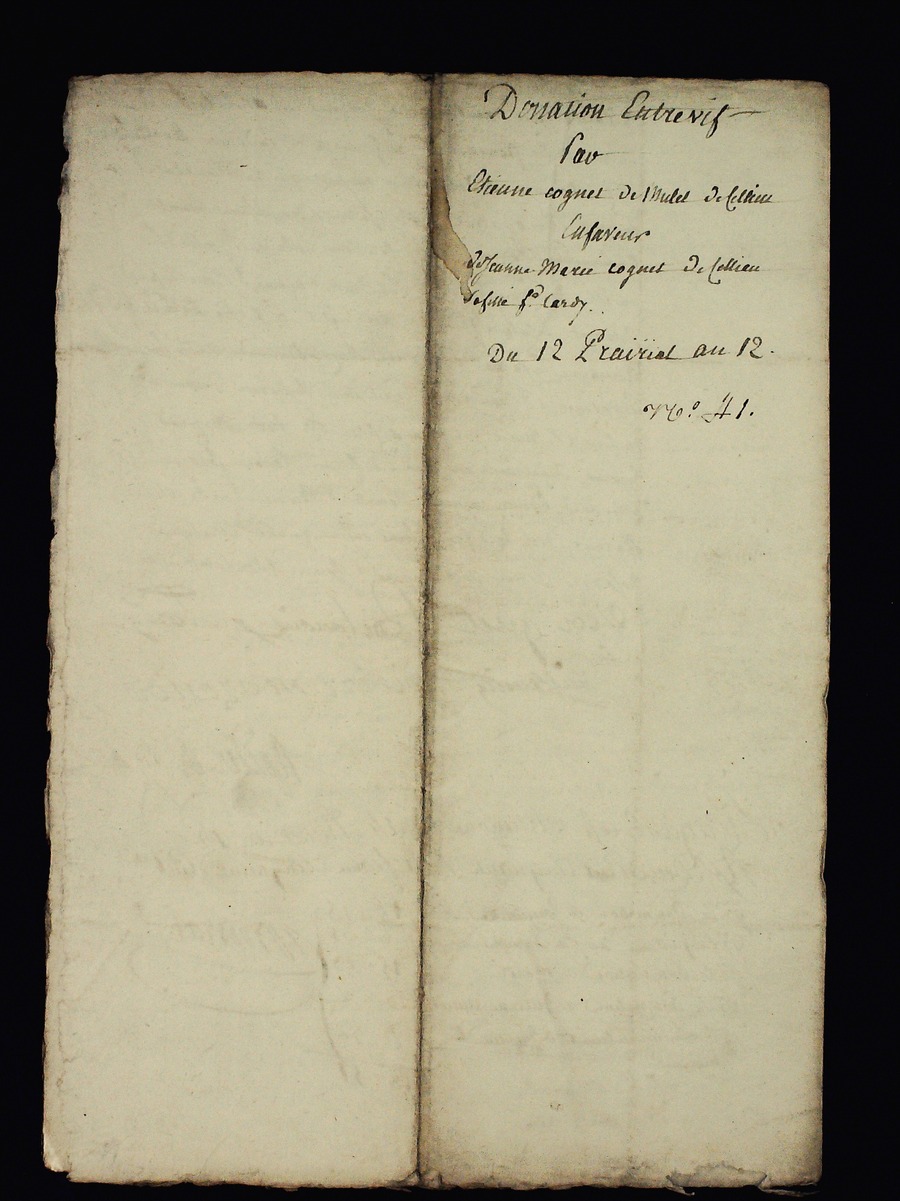 Donation Entrevif
Par
Etienne cognet de Mulet de Cellieu
Enfaveur
de Jeanne Marie cognet de Cellieu
Safille fe Cardy.
Du 12 Prairial an 12.
No. 41.